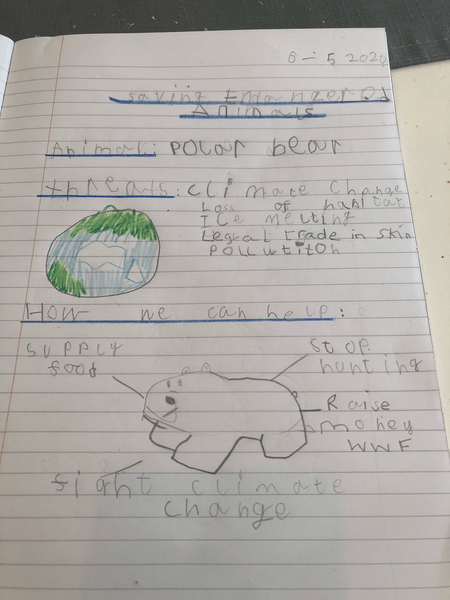 6-5 2020
saving Endangered
Animals
Animal: POLar bear
threats: climate change
Loss of habitat
Ice melting
Legal trade in skin
Pollutiton
How we can help:
supply
food
Stop
hunting
Raise
money
WWF
fight climate
change